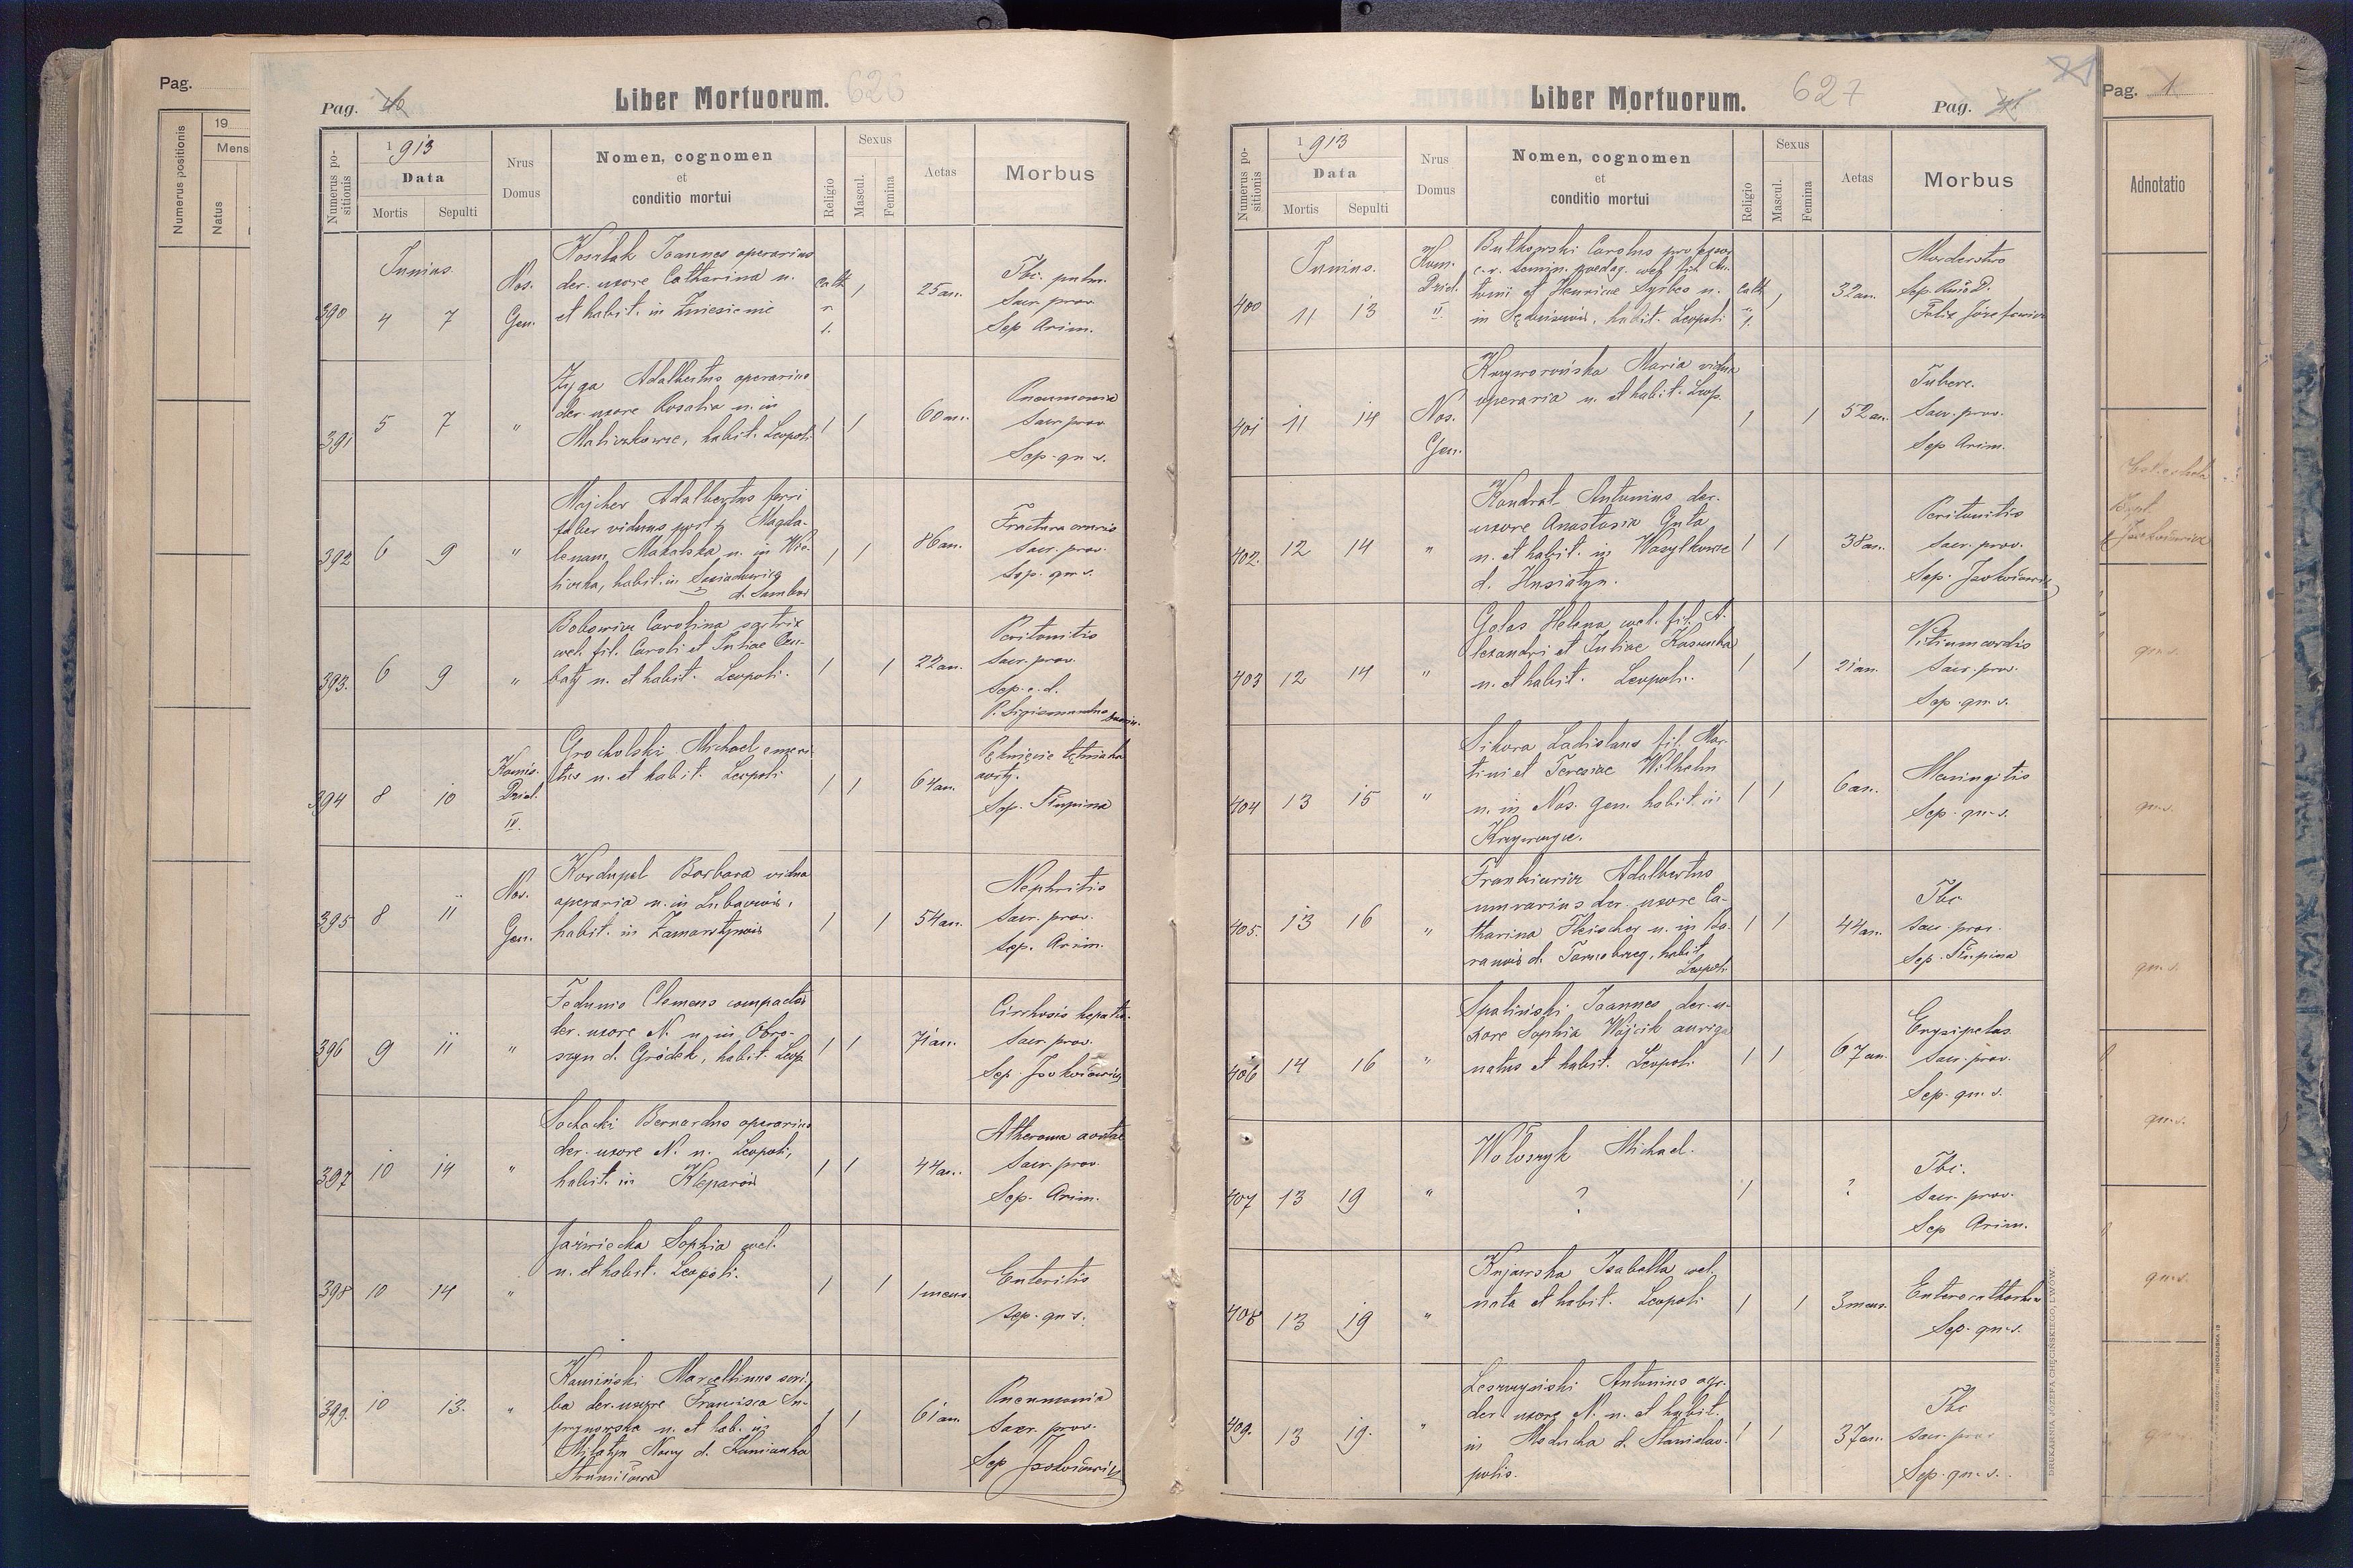 Pag.
Numerus positionis
19
Mens
Natus
Pag. 40
Liber Mortuorum. 626
Numerus positionis
1913
Data
Mortis
Sepulti
Nrus
Domus
Nomen, cognomen
et
conditio mortui
Religio
Sexus
Mascul.
Femina
Aetas
Morbus
Junius
390
4 7
Nos.
Gen.
Koszlak Joannes operarius
der. uxore Catharina n.
et habit. in Zniesienie
cath
r.
l.
1
25 an.
Tbc. pulm.
Sacr. prov.
Sep Arim.
391
5 7
"
Zyga Adalbertus operarius
der. uxore Rosalia n. in
Maliczkowce, habit. Leopoli
1 1
60 an.
Pneumonia
Sacr. prov
Sep. qu. s.
392
6 9
"
Majcher Adalbertus ferri
faber viduus post + Magda-
lenam Makalska n. in Wie-
liczka, habit. in
d. Sambor
1 1
86 an.
Fractura cruris
Sacr. prov.
Sep. qu. s.
393.
6 9
"
Bobowicz Carolina sartrix
coel. fil. Caroli et Juliae
n. et habit. Leopoli.
1 1
22 an.
Peritonitis
Sacr. prov.
Sep. e. d.
P. Sigismundus
394
8 10
Komis.
Dziel.
IV.
Grocholski Michael emeri-
tus n. et habit. Leopoli
1 1
64 an.
Pęknięcie tętniaka
aorty.
Sep. Rzepina
395
8 11
Nos.
Gen.
Kordupel Barbara vidua
operaria n. in Lubaczów,
habit. in Zamarstynów
1 1
54 an.
Nephritis
Sacr. prov.
Sep. Arim.
396
9 11
"
Fedunio Clemens compactor
der. uxore N. n. in Obro-
szyn d. Gródek, habit. Leop.
1 1
71 an.
Cirrhosis hepatis.
Sacr. prov.
Sep.
397
10 14
"
Sochacki Bernardus operarius
der. uxore N. n. Leopoli,
habit. in Kleparów
1 1
44 an.
Atheroma aortae
Sacr. prov.
Sep. Arim.
398
10 14
"
Jaźwiecka Sophia coel.
n. et habit. Leopoli.
1 1
1 mens.
Enteritis
Sep. qu. s.
399.
10 13.
"
Kamiński Marcellinus scri-
ba der. uxore Francisca
n. et hab. in
Milatyn Nowy d. Kamionka
Strumiłowa
1 1
61 an.
Pneumonia
Sacr. prov.
Sep
Liber Mortuorum. 627
Pag. 41
71
Numerus positionis
1913
Data
Mortis
Sepulti
Nrus
Domus
Nomen, cognomen
et
conditio mortui
Religio
Sexus
Mascul.
Femina
Aetas
Morbus
Junius.
400
11 13
Kom.
Dziel.
II.
Butkowski Carolus professor
c. r. semin. paedag. coel. fil. An-
tonii et Henricae n.
in Sędziszów, habit. Leopoli
Cath
r.
l.
1
32 an.
Morderstwo
Sep.
Felix Józefowicz
401
11 14
Nos.
Gen.
Krzyworońska Maria vidua
operaria n. et habit. Leop.
1 1
52 an.
Tuberc.
Sacr. prov.
Sep Arim.
402.
12 14
"
Kondrat Antonius der.
uxore Anastasia Guta
n. et habit. in Wasylkowce
d. Husiatyn.
1 1
38 an.
Peritonitis
Sacr. prov.
Sep.
403
12 14
"
Golas Helena coel. fil. A-
lexandri et Juliae
n. et habit. Leopoli.
1 1
21 an.
Vitium cordis
Sacr. prov.
Sep. qu. s.
404
13 15
"
Sikora Ladislaus fil. Mar-
tini et Teresiae Wilhelm
n. in Nos. Gen. habit. in
Krzywczyce.
1 1
6 an.
Meningitis
Sep. qu. s.
405.
13 16
"
Frankiewicz Adalbertus
murarius der. uxore Ca-
tharina Fleischer n. in Ba-
ranów d. Tarnobrzeg, habit.
Leopoli
1 1
44 an.
Tbc
Sacr. prov.
Sep. Rzepina
406
14 16
"
Spaliński Joannes der. u-
xore Sophia Wójcik auriga
natus et habit. Leopoli
1 1
67 an.
Erysipelas.
Sacr. prov.
Sep. qu. s.
407
13 19
"
Wołoszyk Michael.
?
1
?
Tbc.
Sacr. prov.
Sep Arim.
408
13 19
"
Kujawska Isabella coel.
nata et habit. Leopoli
1 1
3 mens.
Sep. qu. s.
409.
13 19.
"
Leszczyński Antonius agr.
der. uxore N. n. et habit.
in d. Stanislao-
polis.
1 1
37 an.
Tbc
Sacr. prov
Sep. qu. s.
DRUKARNIA JÓZEFA CHĘCIŃSKIEGO, LWÓW.
Pag. 1
Adnotatio
qu. s.
qu. s.
qu. s.
qu. s.
qu. s.